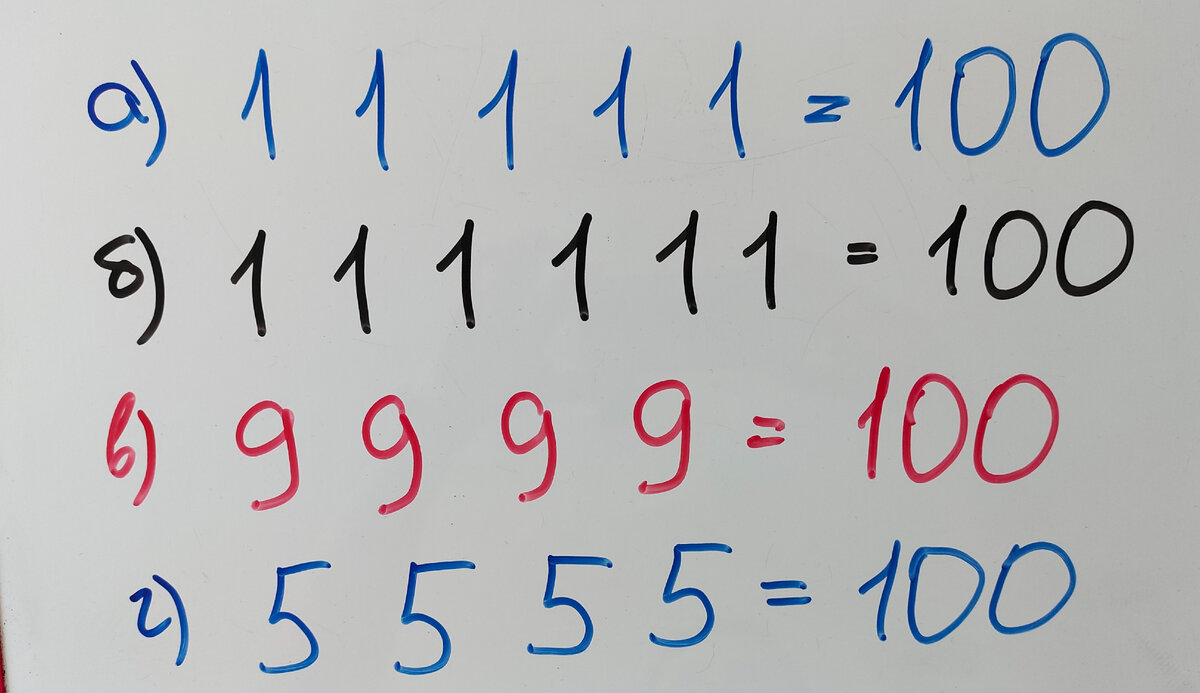 а) 1 1 1 1 1 = 100
б) 1 1 1 1 1 1 = 100
в) 9 9 9 9 = 100
г) 5 5 5 5 = 100